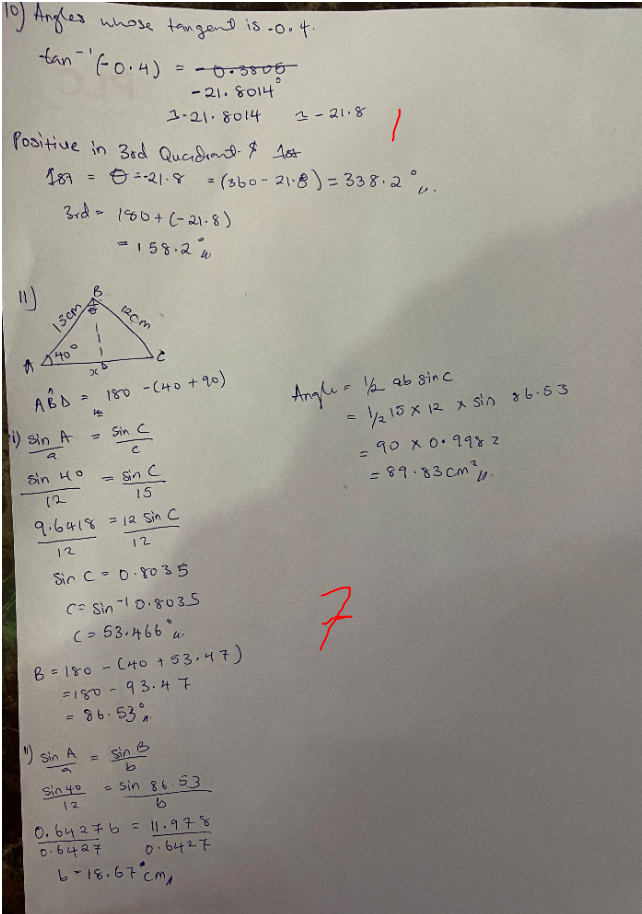 10) Angles whose tangent is -0.4.
tan⁻¹(-0.4) = -0.3805
-21.8014°
-21.8014 ≈ -21.8
1
Positive in 3rd Quadrant & 1st
1st = θ = -21.8 = (360 - 21.8) = 338.2°
3rd = 180 + (-21.8)
= 158.2°
11)
B
15cm
θ
12cm
A
40°
x
D
C
AB̂D = 180 - (40 + 90)
i) Sin A / a = Sin C / c
Sin 40 / 12 = Sin C / 15
9.6418 / 12 = 12 Sin C / 12
Sin C = 0.8035
C = Sin⁻¹ 0.8035
C = 53.466°
B = 180 - (40 + 53.47)
= 180 - 93.47
= 86.53°
ii) Sin A / a = Sin B / b
Sin 40 / 12 = Sin 86.53 / b
0.6427b / 0.6427 = 11.978 / 0.6427
b = 18.67 cm
Angle = ½ ab sin C
= ½ 15 × 12 × sin 86.53
= 90 × 0.9982
= 89.83 cm²
7